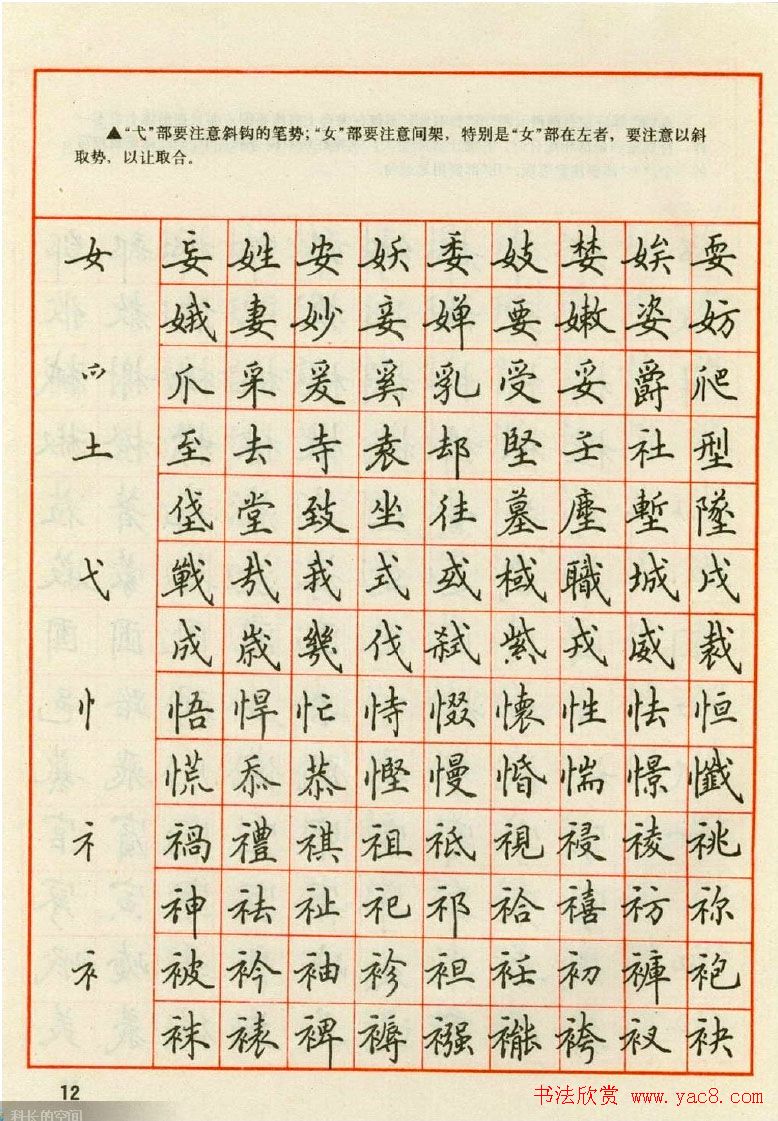 ▲“弋”部要注意斜钩的笔势；“女”部要注意间架，特别是“女”部在左者，要注意以斜
取势，以让取合。
女 妄 姓 安 妖 委 妓 婪 娭 耍
娥 妻 妙 妾 婵 要 嫩 姿 妨
爫 爪 采 爰 奚 乳 受 妥 爵 爬
土 至 去 寺 袁 却 堅 壬 社 型
垡 堂 致 坐 往 墓 塵 塹 墜
弋 戰 哉 我 式 或 域 職 城 戌
成 歲 幾 伐 弑 紫 戎 威 裁
忄 悟 悍 忙 恃 惙 懷 性 怯 恒
慌 忝 恭 慳 慢 惛 惴 憬 懺
礻 禍 禮 祺 祖 祗 視 祲 祾 祧
神 祛 祉 祀 祁 祫 禧 祊 祢
衤 被 衿 袖 袗 袒 衽 初 褲 袍
袜 裱 裨 褥 襁 褦 袴 衩 袂
12
科长的空间
书法欣赏 www.yac8.com